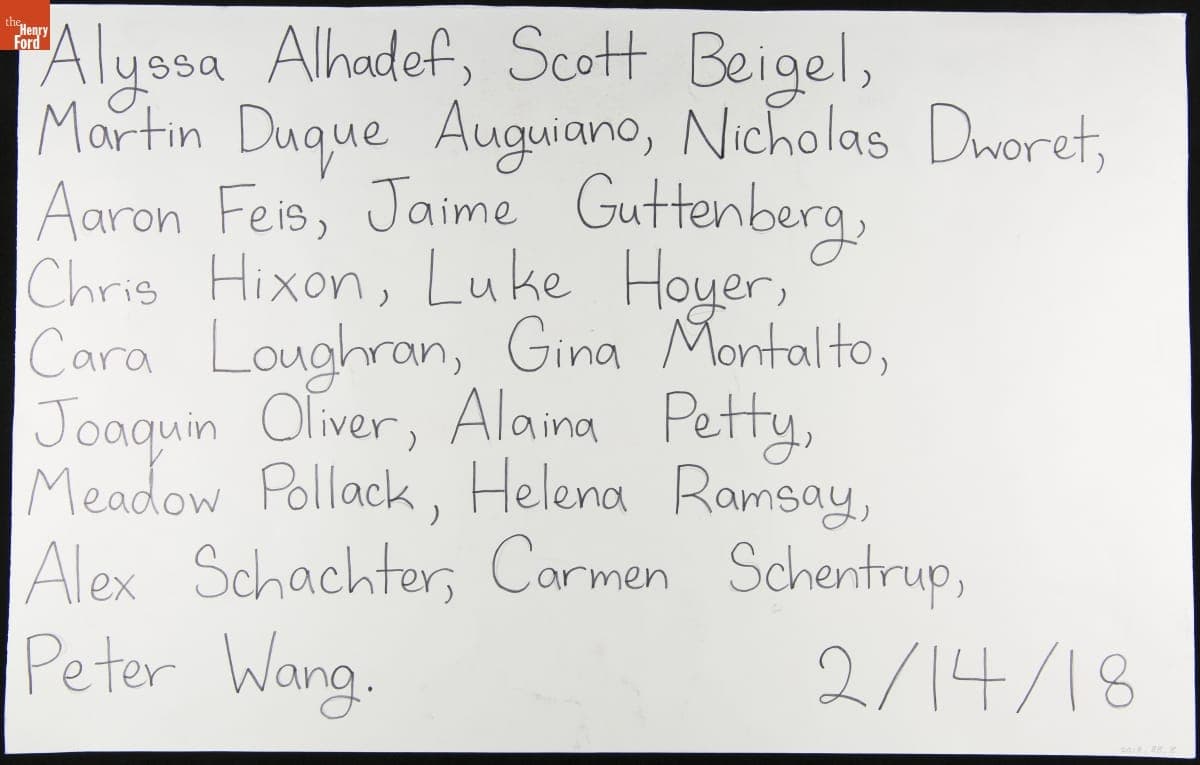 the
Henry
Ford
Alyssa Alhadef, Scott Beigel,
Martin Duque Auguiano, Nicholas Dworet,
Aaron Feis, Jaime Guttenberg,
Chris Hixon, Luke Hoyer,
Cara Loughran, Gina Montalto,
Joaquin Oliver, Alaina Petty,
Meadow Pollack, Helena Ramsay,
Alex Schachter, Carmen Schentrup,
Peter Wang. 2/14/18